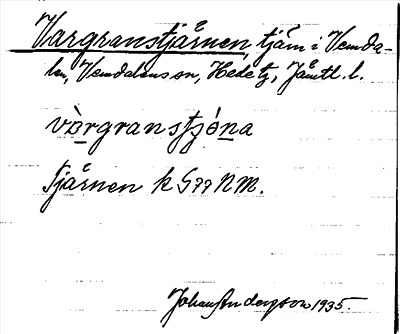 Vargranstjärnen, tjärn i Vemda-
len, Vemdalens sn, Hede tg, Jämtl. l.
Tjärnen k G77 NM.
Johan Anderzson 1935.